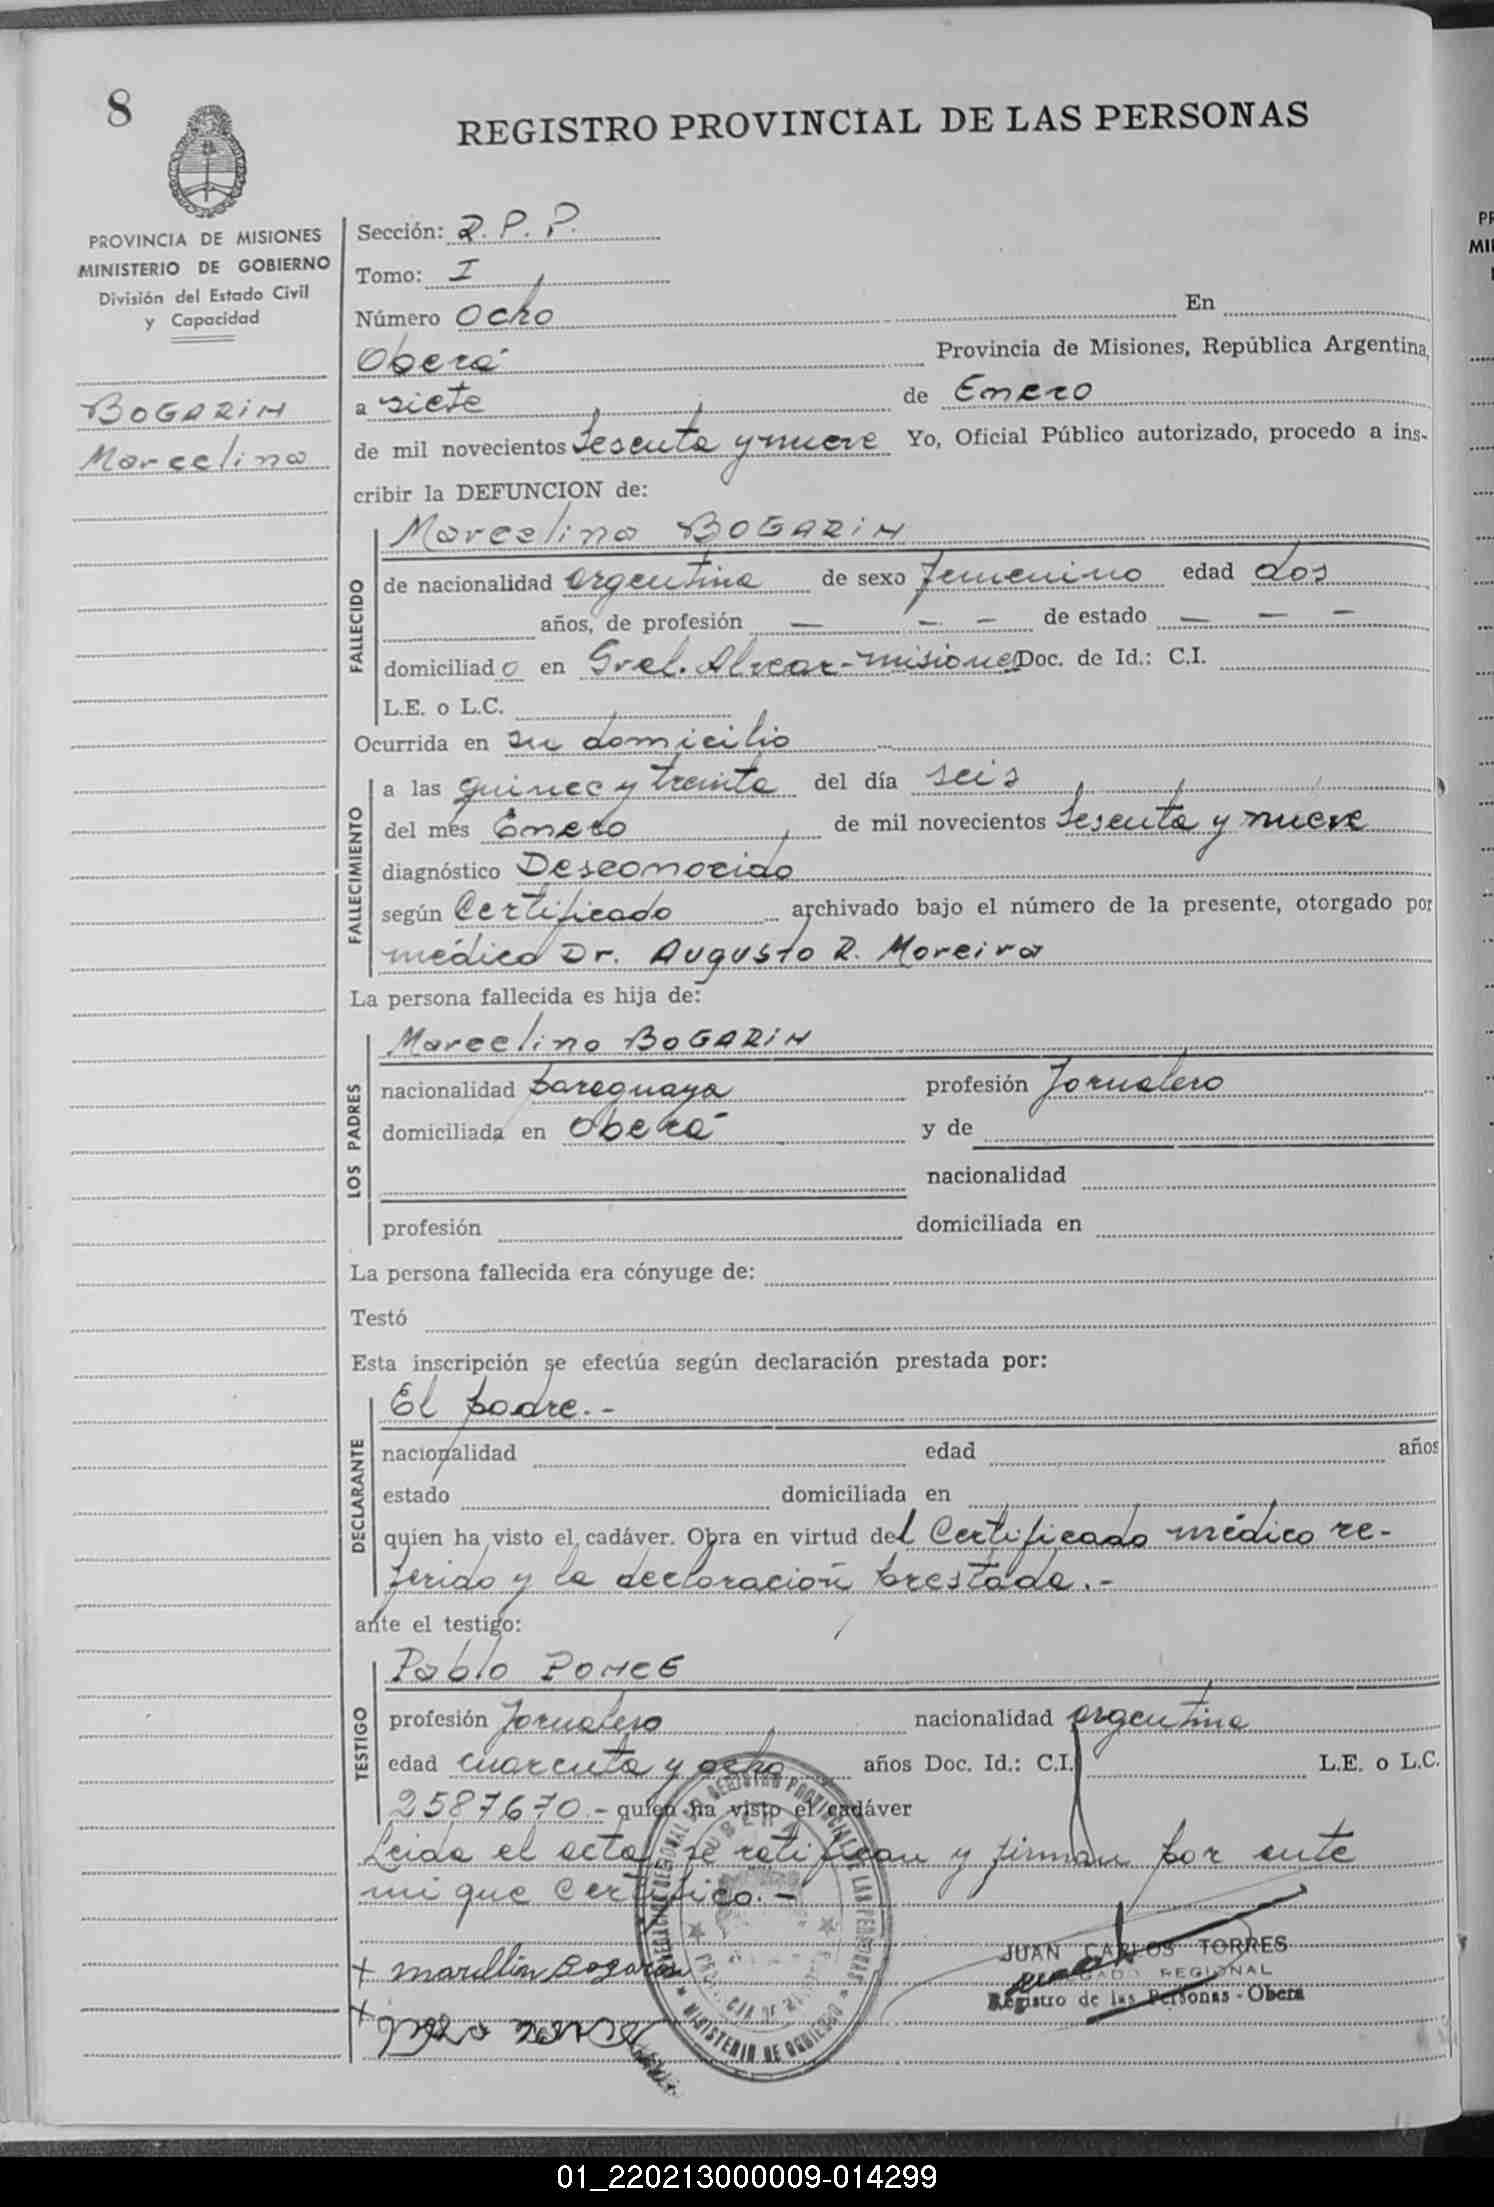 8
REGISTRO PROVINCIAL DE LAS PERSONAS
PROVINCIA DE MISIONES
MINISTERIO DE GOBIERNO
División del Estado Civil
y Capacidad
BOGARIN
Marcelina
Sección: R. P. P.
Tomo: I
Número Ocho En
Oberá Provincia de Misiones, República Argentina,
a siete de Enero
de mil novecientos sesenta y nueve Yo, Oficial Público autorizado, procedo a ins-
cribir la DEFUNCION de:
FALLECIDO
Marcelina BOGARIN
de nacionalidad argentina de sexo femenino edad dos
años, de profesión — — — de estado — — —
domiciliado en Gral. Alvear-Misiones Doc. de Id.: C.I.
L.E. o L.C.
Ocurrida en su domicilio
FALLECIMIENTO
a las quince y treinta del día seis
del mes Enero de mil novecientos sesenta y nueve
diagnóstico Desconocido
según Certificado archivado bajo el número de la presente, otorgado por
médico Dr. Augusto R. Moreira
La persona fallecida es hija de:
LOS PADRES
Marcelino BOGARIN
nacionalidad paraguaya profesión Jornalero
domiciliada en Oberá y de
nacionalidad
profesión domiciliada en
La persona fallecida era cónyuge de:
Testó
Esta inscripción se efectúa según declaración prestada por:
DECLARANTE
El padre.-
nacionalidad edad años
estado domiciliada en
quien ha visto el cadáver. Obra en virtud del Certificado médico re-
ferido y la declaración prestada.-
ante el testigo:
TESTIGO
Pablo PONCE
profesión Jornalero nacionalidad argentina
edad cuarenta y ocho años Doc. Id.: C.I. L.E. o L.C.
2587670.- quien ha visto el cadáver
Leida el acta se ratifican y firman por ante
mi que Certifico.-
JUAN CARLOS TORRES
DELEGADO REGIONAL
Registro de las Personas - Oberá
DELEGACION REGIONAL DEL REGISTRO PROVINCIAL DE LAS PERSONAS
OBERA
MINISTERIO DE GOBIERNO
+ marcllin Bogarin
01_220213000009-014299